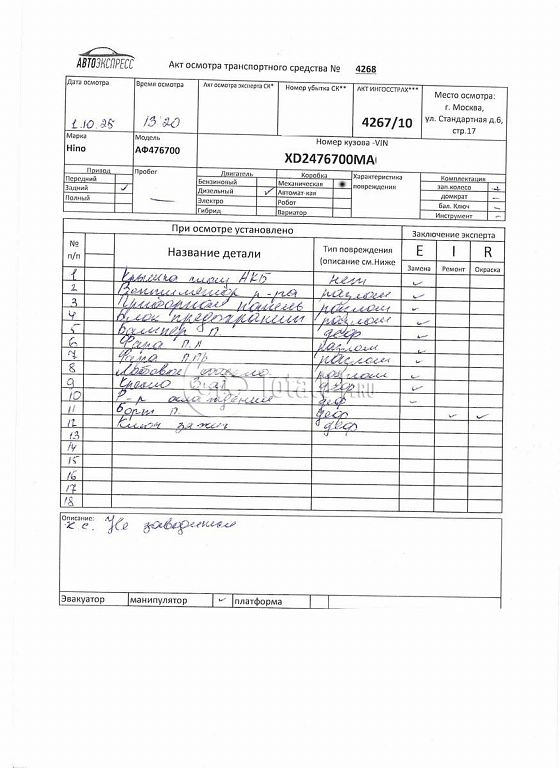 АВТОЭКСПРЕСС
Акт осмотра транспортного средства № 4268
Дата осмотра Время осмотра Акт осмотра эксперта СК* Номер убытка СК** АКТ ИНГОССТРАХ*** Место осмотра:
г. Москва,
ул. Стандартная д.6,
стр.17
1.10.25 13 20 4267/10
Марка Модель Номер кузова -VIN
Hino АФ476700 XD2476700MA
Привод Пробег Двигатель Коробка Характеристика повреждения Комплектация
Передний Бензиновый Механическая зап.колесо
Задний Дизельный Автомат-кая домкрат
Полный Электро Робот бал. Ключ
Гибрид Вариатор Инструмент
При осмотре установлено Заключение эксперта
№ п/п Название детали Тип повреждения (описание см.Ниже E I R
Замена Ремонт Окраска
1 Крышка АКБ нет
2 Вентилятор р-ра разлом
3 Приборная панель разлом
4 Блок предохранит разлом
5 Бампер п. деф
6 Фара п.л разлом
7 Фара п.пр разлом
8 Лобовое разлом
9 деф
10 Р-р охлаждения деф
11 Борт п. деф
12 Ключ зажиг деф
13
14
15
16
17
18
Описание:
Не заводится
Эвакуатор манипулятор платформа